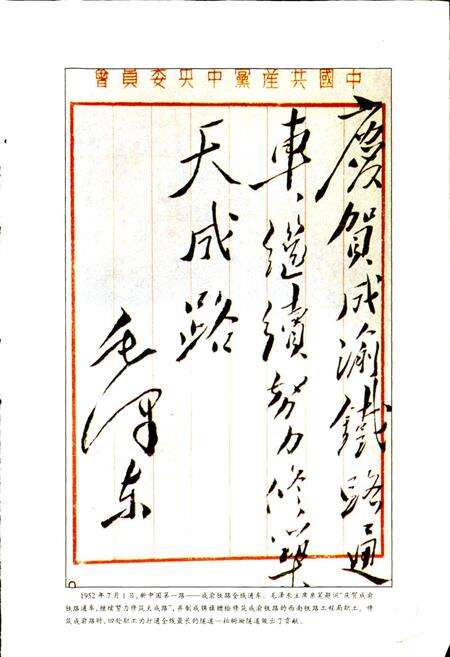 中國共產黨中央委員會
慶賀成渝鐵路通
車，繼續努力修築
天成路
毛澤东
1952年7月1日，新中国第一路——成渝铁路全线通车。毛泽东主席亲笔题词“庆贺成渝
铁路通车，继续努力修筑天成路”，并制成锦旗赠给修筑成渝铁路的西南铁路工程局职工。修
筑成渝路时，四处职工为打通全线最长的隧道—柏树坳隧道做出了贡献。